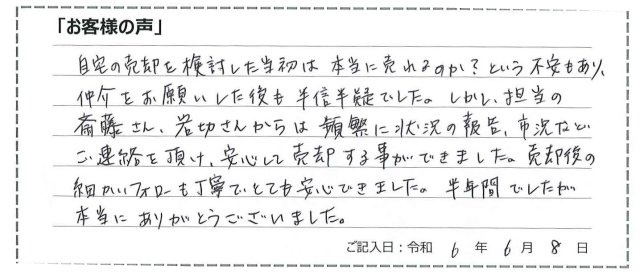 「お客様の声」
自宅の売却を検討した当初は本当に売れるのか？という不安もあり、
仲介をお願いした後も半信半疑でした。しかし、担当の
斎藤さん、岩切さんからは頻繁に状況の報告、市況など
ご連絡を頂け、安心して売却する事ができました。売却後の
細かいフォローも丁寧でとても安心できました。半年間でしたが
本当にありがとうございました。
ご記入日：令和 6 年 6 月 8 日